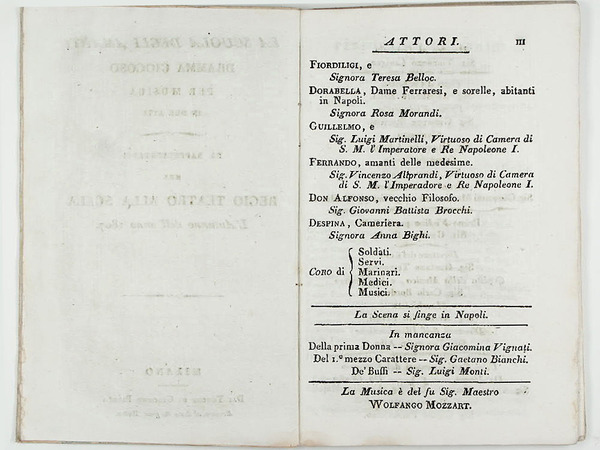 ATTORI. III
FIORDILIGI, e
Signora Teresa Belloc.
DORABELLA, Dame Ferraresi, e sorelle, abitanti
in Napoli.
Signora Rosa Morandi.
GUILLELMO, e
Sig. Luigi Martinelli, Virtuoso di Camera di
S. M. l'Imperatore e Re Napoleone I.
FERRANDO, amanti delle medesime.
Sig. Vincenzo Aliprandi, Virtuoso di Camera
di S. M. l'Imperadore e Re Napoleone I.
DON ALFONSO, vecchio Filosofo.
Sig. Giovanni Battista Brocchi.
DESPINA, Cameriera.
Signora Anna Bighi.
Soldati.
Servi.
CORO di Marinari.
Medici.
Musici.
La Scena si finge in Napoli.
In mancanza
Della prima Donna -- Signora Giacomina Vignati.
Del 1.° mezzo Carattere -- Sig. Gaetano Bianchi.
De' Buffi -- Sig. Luigi Monti.
La Musica è del fu Sig. Maestro
WOLFANGO MOZZART.
LA SCUOLA DEGLI AMANTI
DRAMMA GIOCOSO
PER MUSICA
DA RAPPRESENTARSI
NEL
REGIO TEATRO ALLA SCALA
L'Autunno dell'anno 1807.
MILANO